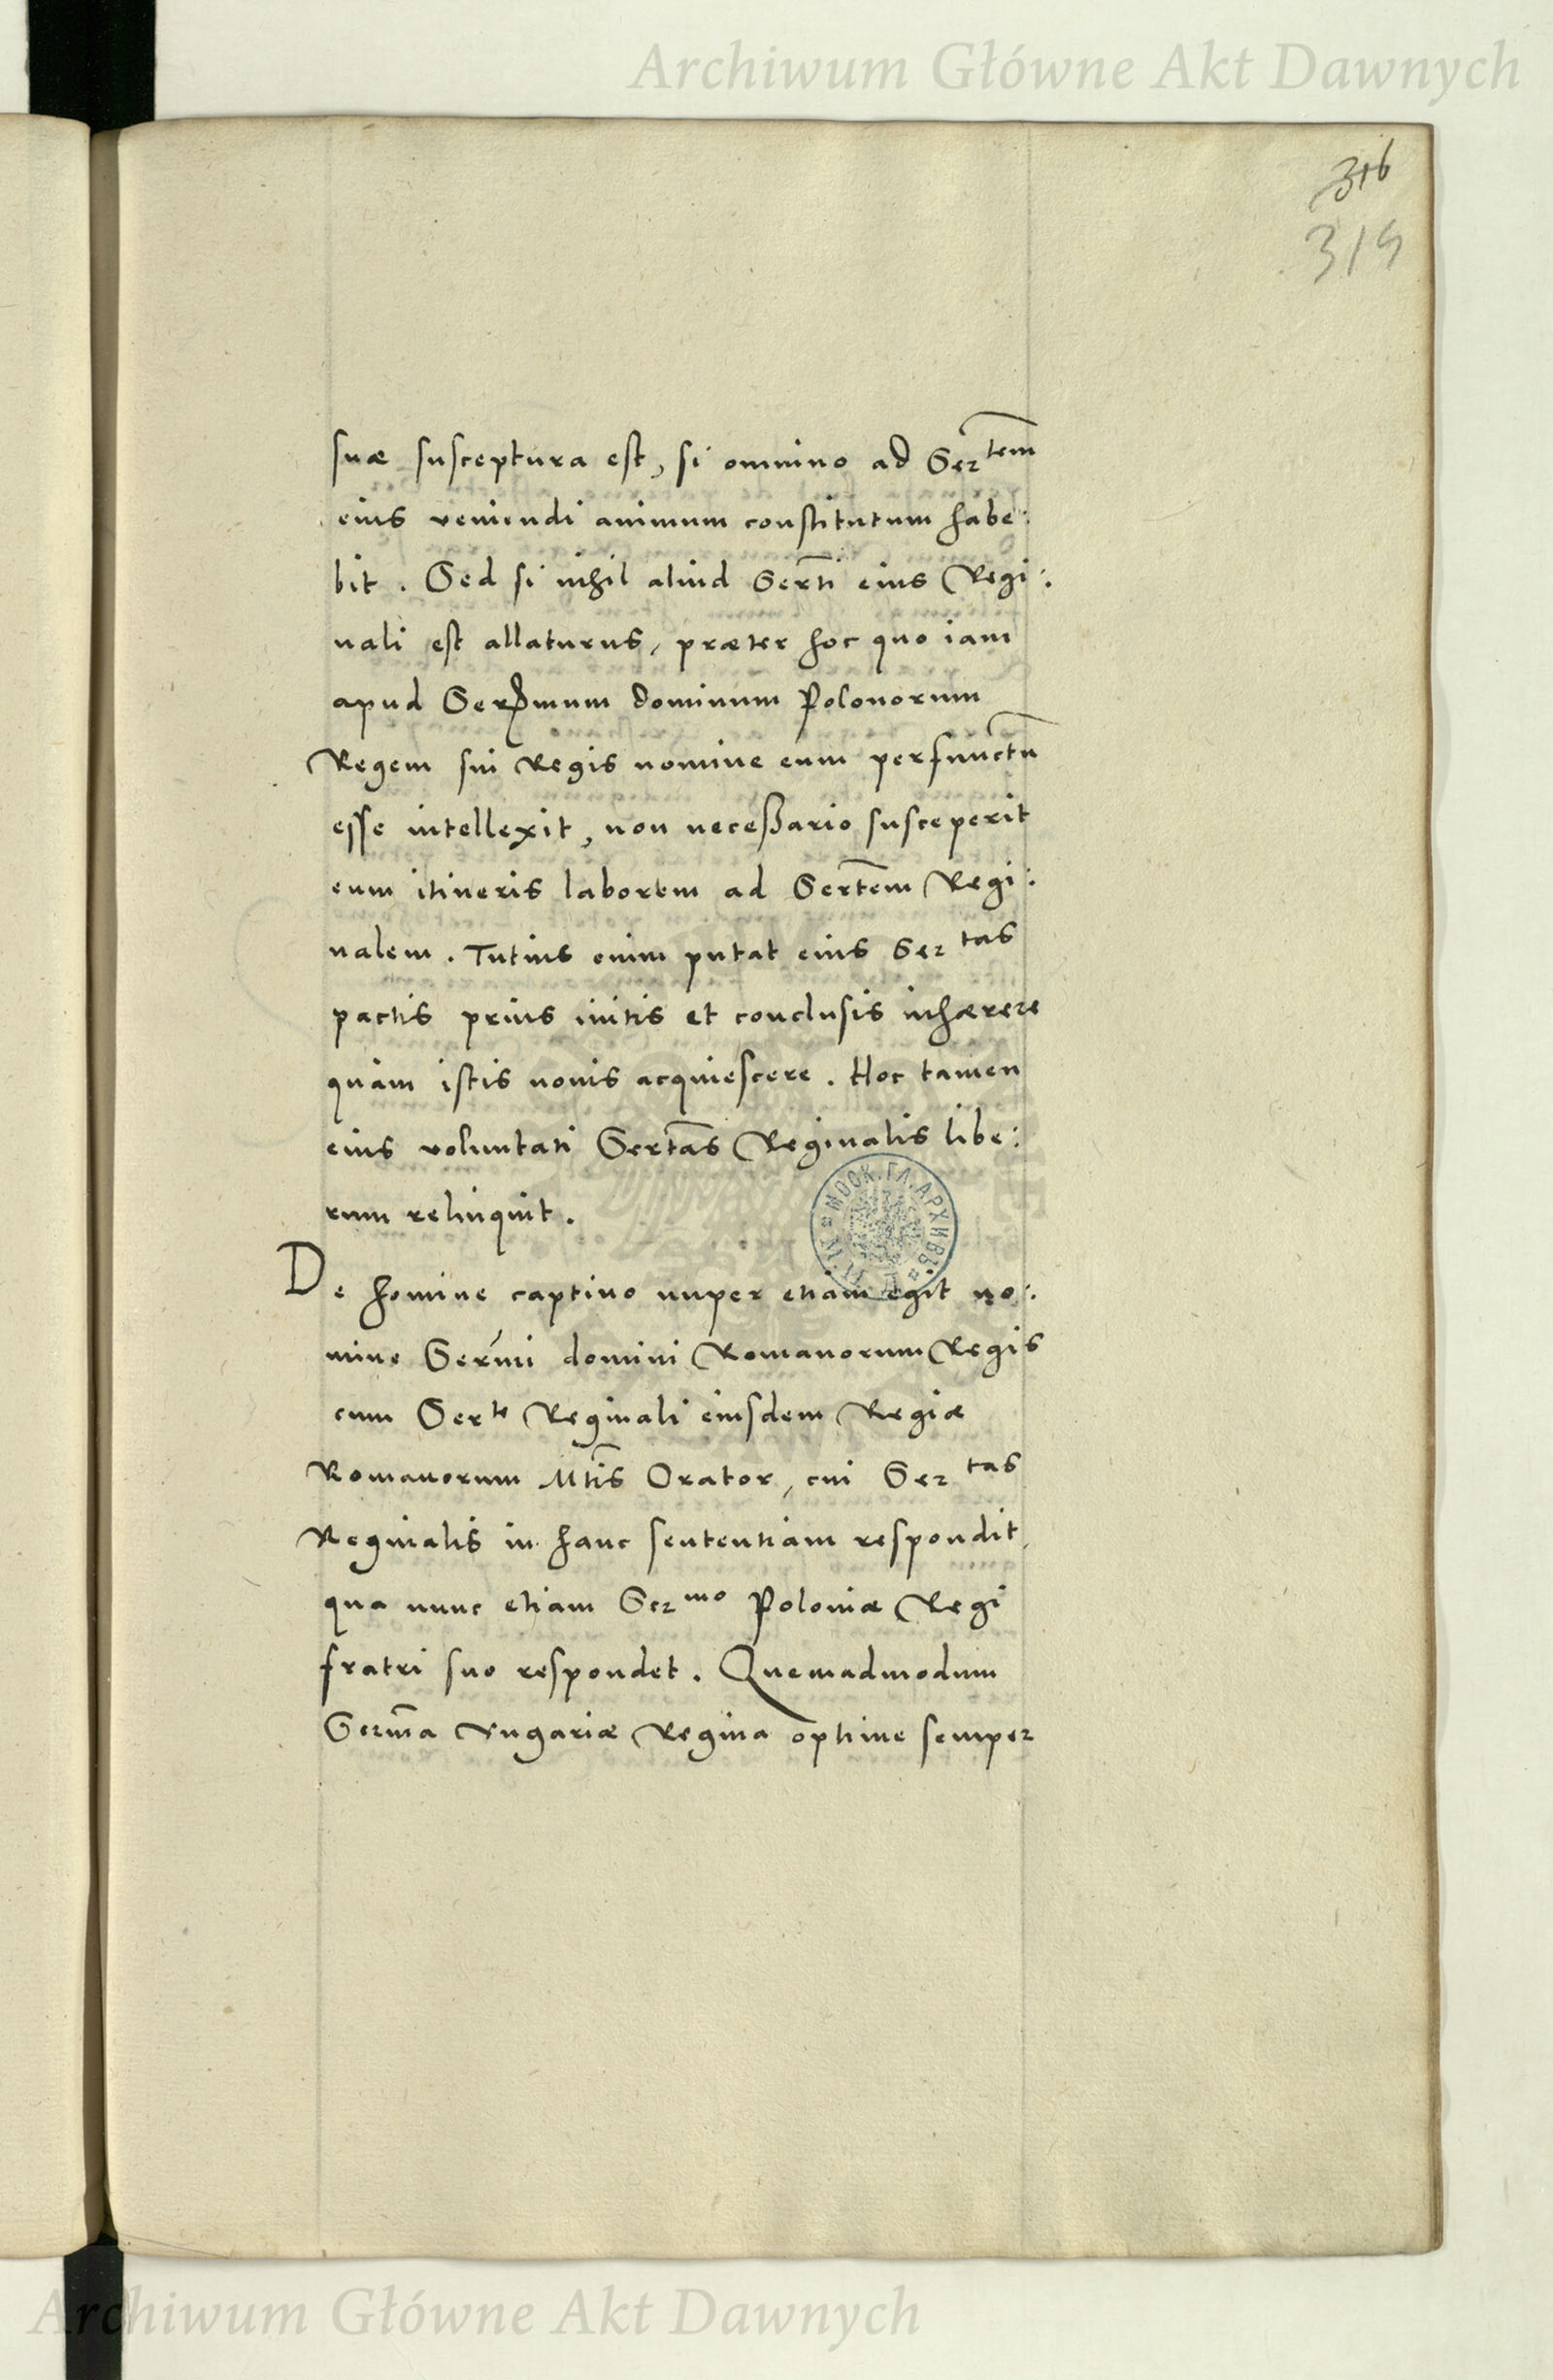 Archiwum Główne Akt Dawnych
316
319
suæ susceptura est, si omnino ad Ser^tem
eius veniendi animum constitutum habe:
bit. Sed si nihil aliud Serti eius Regi:
nali est allaturus, præter hoc quo iam
apud Sermum dominum Polonorum
Regem sui Regis nomine eum perfunctu
esse intellexit, non neceßario susceperit
eum itineris laborem ad Sertem Regi:
nalem. Tutius enim putat eius Ser^tas
pactis prius initis et conclusis inhærere
quàm istis nouis acquiescere. Hoc tamen
eius voluntati Sertas Reginalis libe:
rum relinquit.
De homine captiuo nuper etiam egit no:
mine Sermi domini Romanorum Regis
cum Ser^te Reginali eiusdem Regiæ
Romanorum Mtis Orator, cui Ser^tas
Reginalis in hanc sententiam respondit,
qua nunc etiam Ser^mo Poloniæ Regi
fratri suo respondet. Quemadmodum
Serma Vngariæ Regina optime semper
Archiwum Główne Akt Dawnych